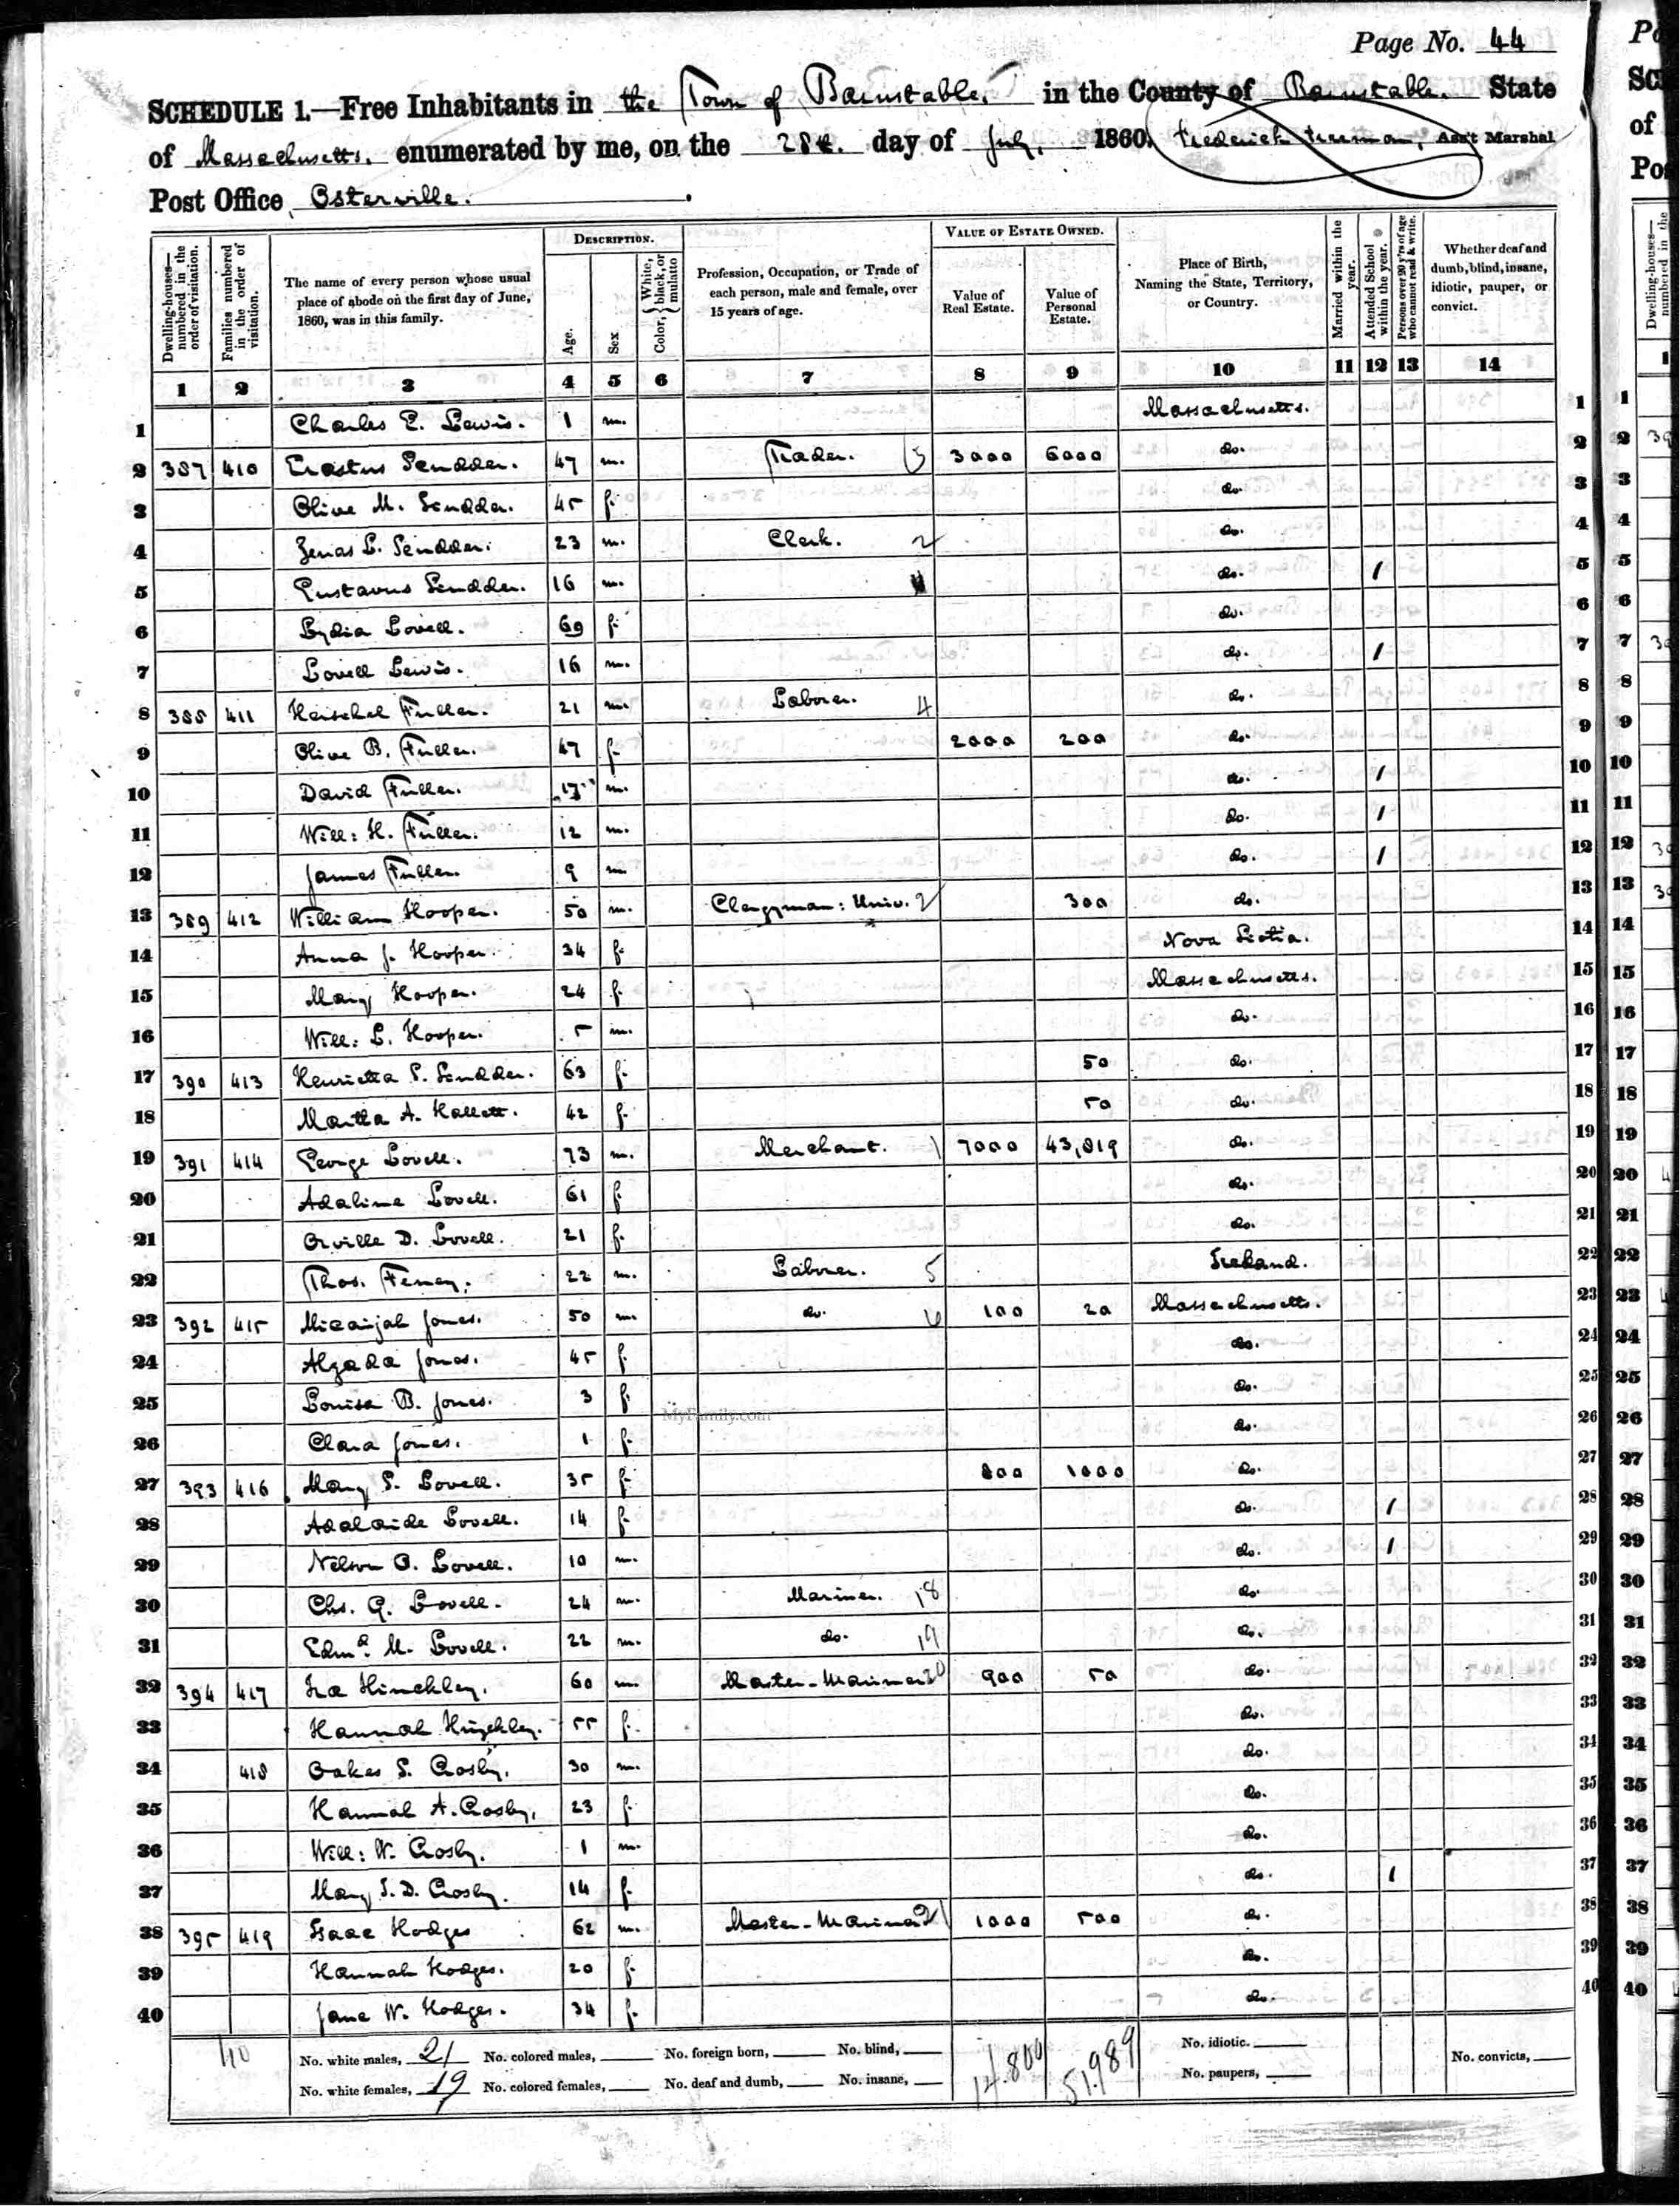 Page No. 44
SCHEDULE 1.—Free Inhabitants in the Town of Barnstable, in the County of Barnstable. State
of Massachusetts. enumerated by me, on the 28th. day of July, 1860. Frederick Freeman, Ass't Marshal
Post Office Osterville.
Dwelling-houses—numbered in the order of visitation.
Families numbered in the order of visitation.
The name of every person whose usual place of abode on the first day of June, 1860, was in this family.
DESCRIPTION.
Age.
Sex
Color, White, black, or mulatto
Profession, Occupation, or Trade of each person, male and female, over 15 years of age.
VALUE OF ESTATE OWNED.
Value of Real Estate.
Value of Personal Estate.
Place of Birth, Naming the State, Territory, or Country.
Married within the year.
Attended School within the year.
Persons over 20 y'rs of age who cannot read & write.
Whether deaf and dumb, blind, insane, idiotic, pauper, or convict.
1 2 3 4 5 6 7 8 9 10 11 12 13 14
1 Charles E. Lewis. 1 m. Massachusetts. 1
2 387 410 Erastus Scudder. 47 m. Trader. 3000 6000 do. 2
3 Olive M. Scudder. 45 f. do. 3
4 Zenas L. Scudder. 23 m. Clerk. 2 do. 4
5 Gustavus Scudder. 16 m. do. / 5
6 Lydia Lovell. 69 f. do. 6
7 Lovell Lewis. 16 m. do. / 7
8 388 411 Herschel Fuller. 21 m. Laborer. 4 do. 8
9 Olive B. Fuller. 47 f. 2000 200 do. 9
10 David Fuller. 17 m. do. / 10
11 Will: H. Fuller. 12 m. do. / 11
12 James Fuller. 9 m. do. / 12
13 389 412 William Hooper. 50 m. Clergyman: Univ. 2 300 do. 13
14 Anna J. Hooper. 34 f. Nova Scotia. 14
15 Mary Hooper. 24 f. Massachusetts. 15
16 Will: L. Hooper. 5 m. do. 16
17 390 413 Henrietta S. Scudder. 63 f. 50 do. 17
18 Martha A. Hallett. 42 f. 50 do. 18
19 391 414 George Lovell. 73 m. Merchant. 1 7000 43,819 do. 19
20 Adaline Lovell. 61 f. do. 20
21 Orville D. Lovell. 21 f. do. 21
22 Thos. Feney. 22 m. Laborer. 5 Ireland. 22
23 392 415 Micaijah Jones. 50 m. do. 6 100 20 Massachusetts. 23
24 Algada Jones. 45 f. do. 24
25 Louisa B. Jones. 3 f. do. 25
MyFamily.com
26 Clara Jones. 1 f. do. 26
27 393 416 Mary S. Lovell. 35 f. 800 1000 do. 27
28 Adalaide Lovell. 14 f. do. / 28
29 Nelson O. Lovell. 10 m. do. / 29
30 Chs. G. Lovell. 24 m. Mariner. 18 do. 30
31 Edmd. M. Lovell. 22 m. do. 19 do. 31
32 394 417 Ira Hinckley. 60 m. Master-Mariner 20 900 50 do. 32
33 Hannah Hinckley. 55 f. do. 33
34 418 Oakes S. Crosby. 30 m. do. 34
35 Hannah A. Crosby. 23 f. do. 35
36 Will: W. Crosby. 1 m. do. 36
37 Mary S. D. Crosby. 14 f. do. / 37
38 395 419 Isaac Hodges 62 m. Master-Mariner 21 1000 500 do. 38
39 Hannah Hodges. 20 f. do. 39
40 Jane W. Hodges. 34 f. do. 40
40 No. white males, 21 No. colored males, No. foreign born, No. blind, 14.800 51,989 No. idiotic. No. convicts,
No. white females, 19 No. colored females, No. deaf and dumb, No. insane, No. paupers,